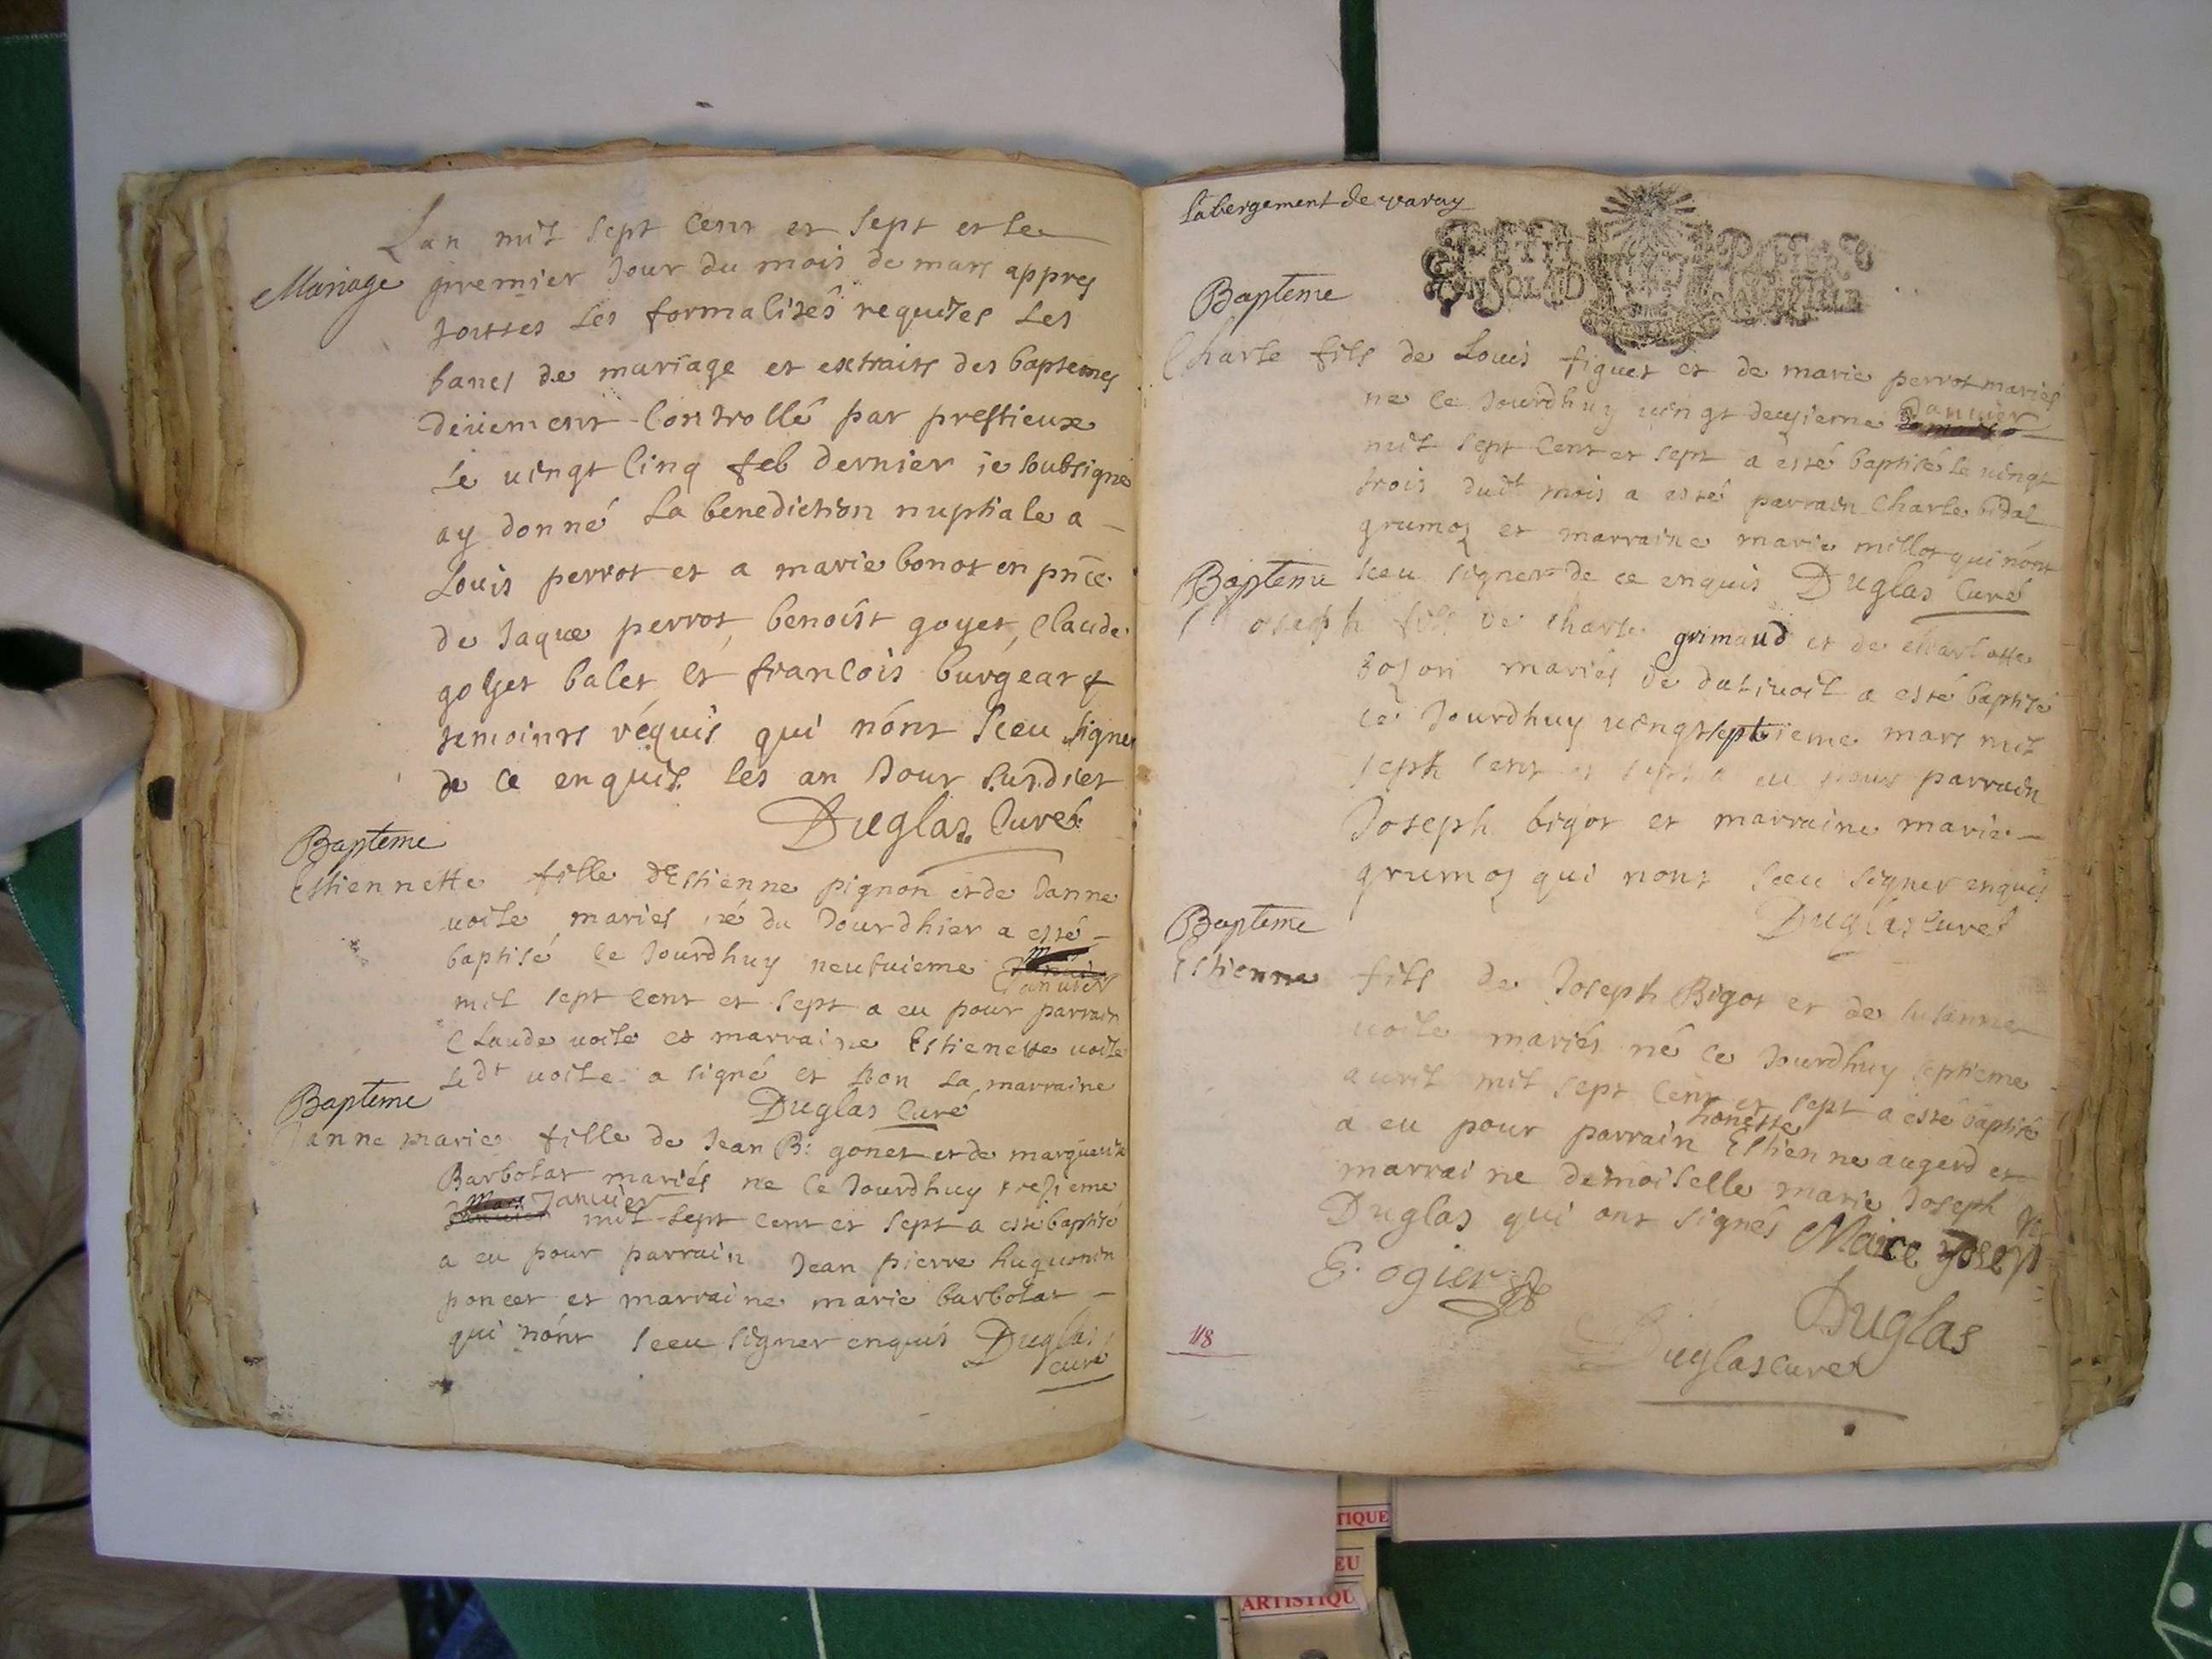 Lan mil sept cent et sept et le
Mariage premier Jour du mois de mars appres
touttes les formalités requites les
bancs de mariage et extraits des baptemes
deüement Controllé par prestieux
le uingt cinq feb dernier ie soubsigné
ay donné la benediction nuptiale a
Louis perrot et a marie bonot en pnce
de Jaque perrot, benoist goyet, Claude
goyet balet et francois burgeart
temoints réquis qui nónt sceu signer
de ce enquis les an Jour susdict
Duglas Curé
Bapteme
Estiennette fille dEstienne pignon et de Janne
uoile mariés né du Jourdhier a esté
baptisé ce Jourdhuy neufuieme
Januier
mil sept cent et sept a eu pour parrain
Claude uoile et marraine Estienette uoile
le dt uoile a signé et non la marraine
Duglas Curé
Bapteme
Janne marie fille de Jean B: gonet et de marguerite
Barbolat mariés ne ce Jourdhuy trezieme
Januier mil sept cent et sept a esté baptisé
a eu pour parrain Jean pierre huguonin
poncet et marraine marie barbolat
qui nónt sceu signer enquis Duglas
curé
Labergement de varay
PETIT PAPIER
Bapteme
Charle fils de Louis figuet et de marie perrot mariés
ne ce Jourdhuy uingt deuxieme Januier
mil sept cent et sept a esté baptisé le uingt
trois dudt mois a esté parrain Charle bidal
grumoz et marraine marie millot qui nónt
Bapteme sceu signer de ce enquis Duglas Curé
Joseph fils de charle grimaud et de charlotte
mariés de a esté baptisé
ce Jourdhuy uingtseptieme mars mil
sept cent et sept a eu pour parrain
Joseph bigot et marraine marie
grumoz qui nont sceu signer enquis
Duglas Curé
Bapteme
Estienne fils de Joseph Bigot et de susanne
uoile mariés né ce Jourdhuy septieme
auril mil sept cent et sept a esté baptisé
honeste
a eu pour parrain Estienne augerd et
marraine demoiselle marie Joseph
Duglas qui ont signés Marie Joseph
E. ogier
Duglas
Duglas Curé
118
TIQUE
EU
ARTISTIQU